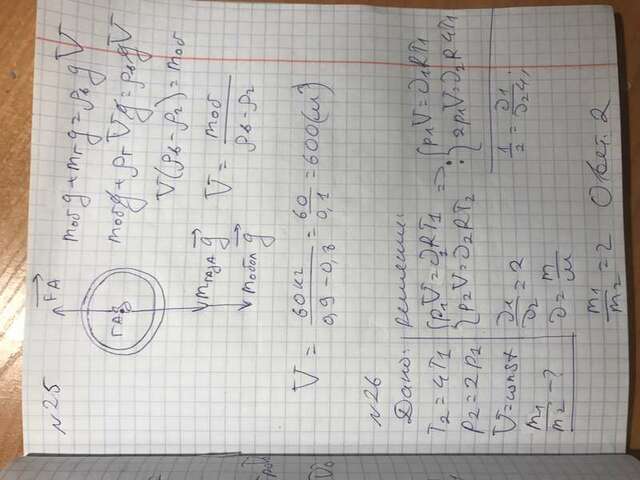 №25
F_A
ГАЗ
m_газа g
m_обол g
m_об g + m_г g = ρ_в g V
m_об g + ρ_г V g = ρ_в g V
V(ρ_в - ρ_г) = m_об
V = m_об / (ρ_в - ρ_г)
V = 60кг / (0,9 - 0,8) = 60 / 0,1 = 600 (м³)
№26
Дано: решение:
T₂ = 4T₁
p₂ = 2p₁
V = const
m₁/m₂ - ?
{ p₁V = ϑ₁RT₁
{ p₂V = ϑ₂RT₂
=> : { p₁V = ϑ₁RT₁
{ 2p₁V = ϑ₂R4T₁
1/2 = ϑ₁/ϑ₂4;
ϑ₁/ϑ₂ = 2
ϑ = m/M
m₁/m₂ = 2 Ответ. 2